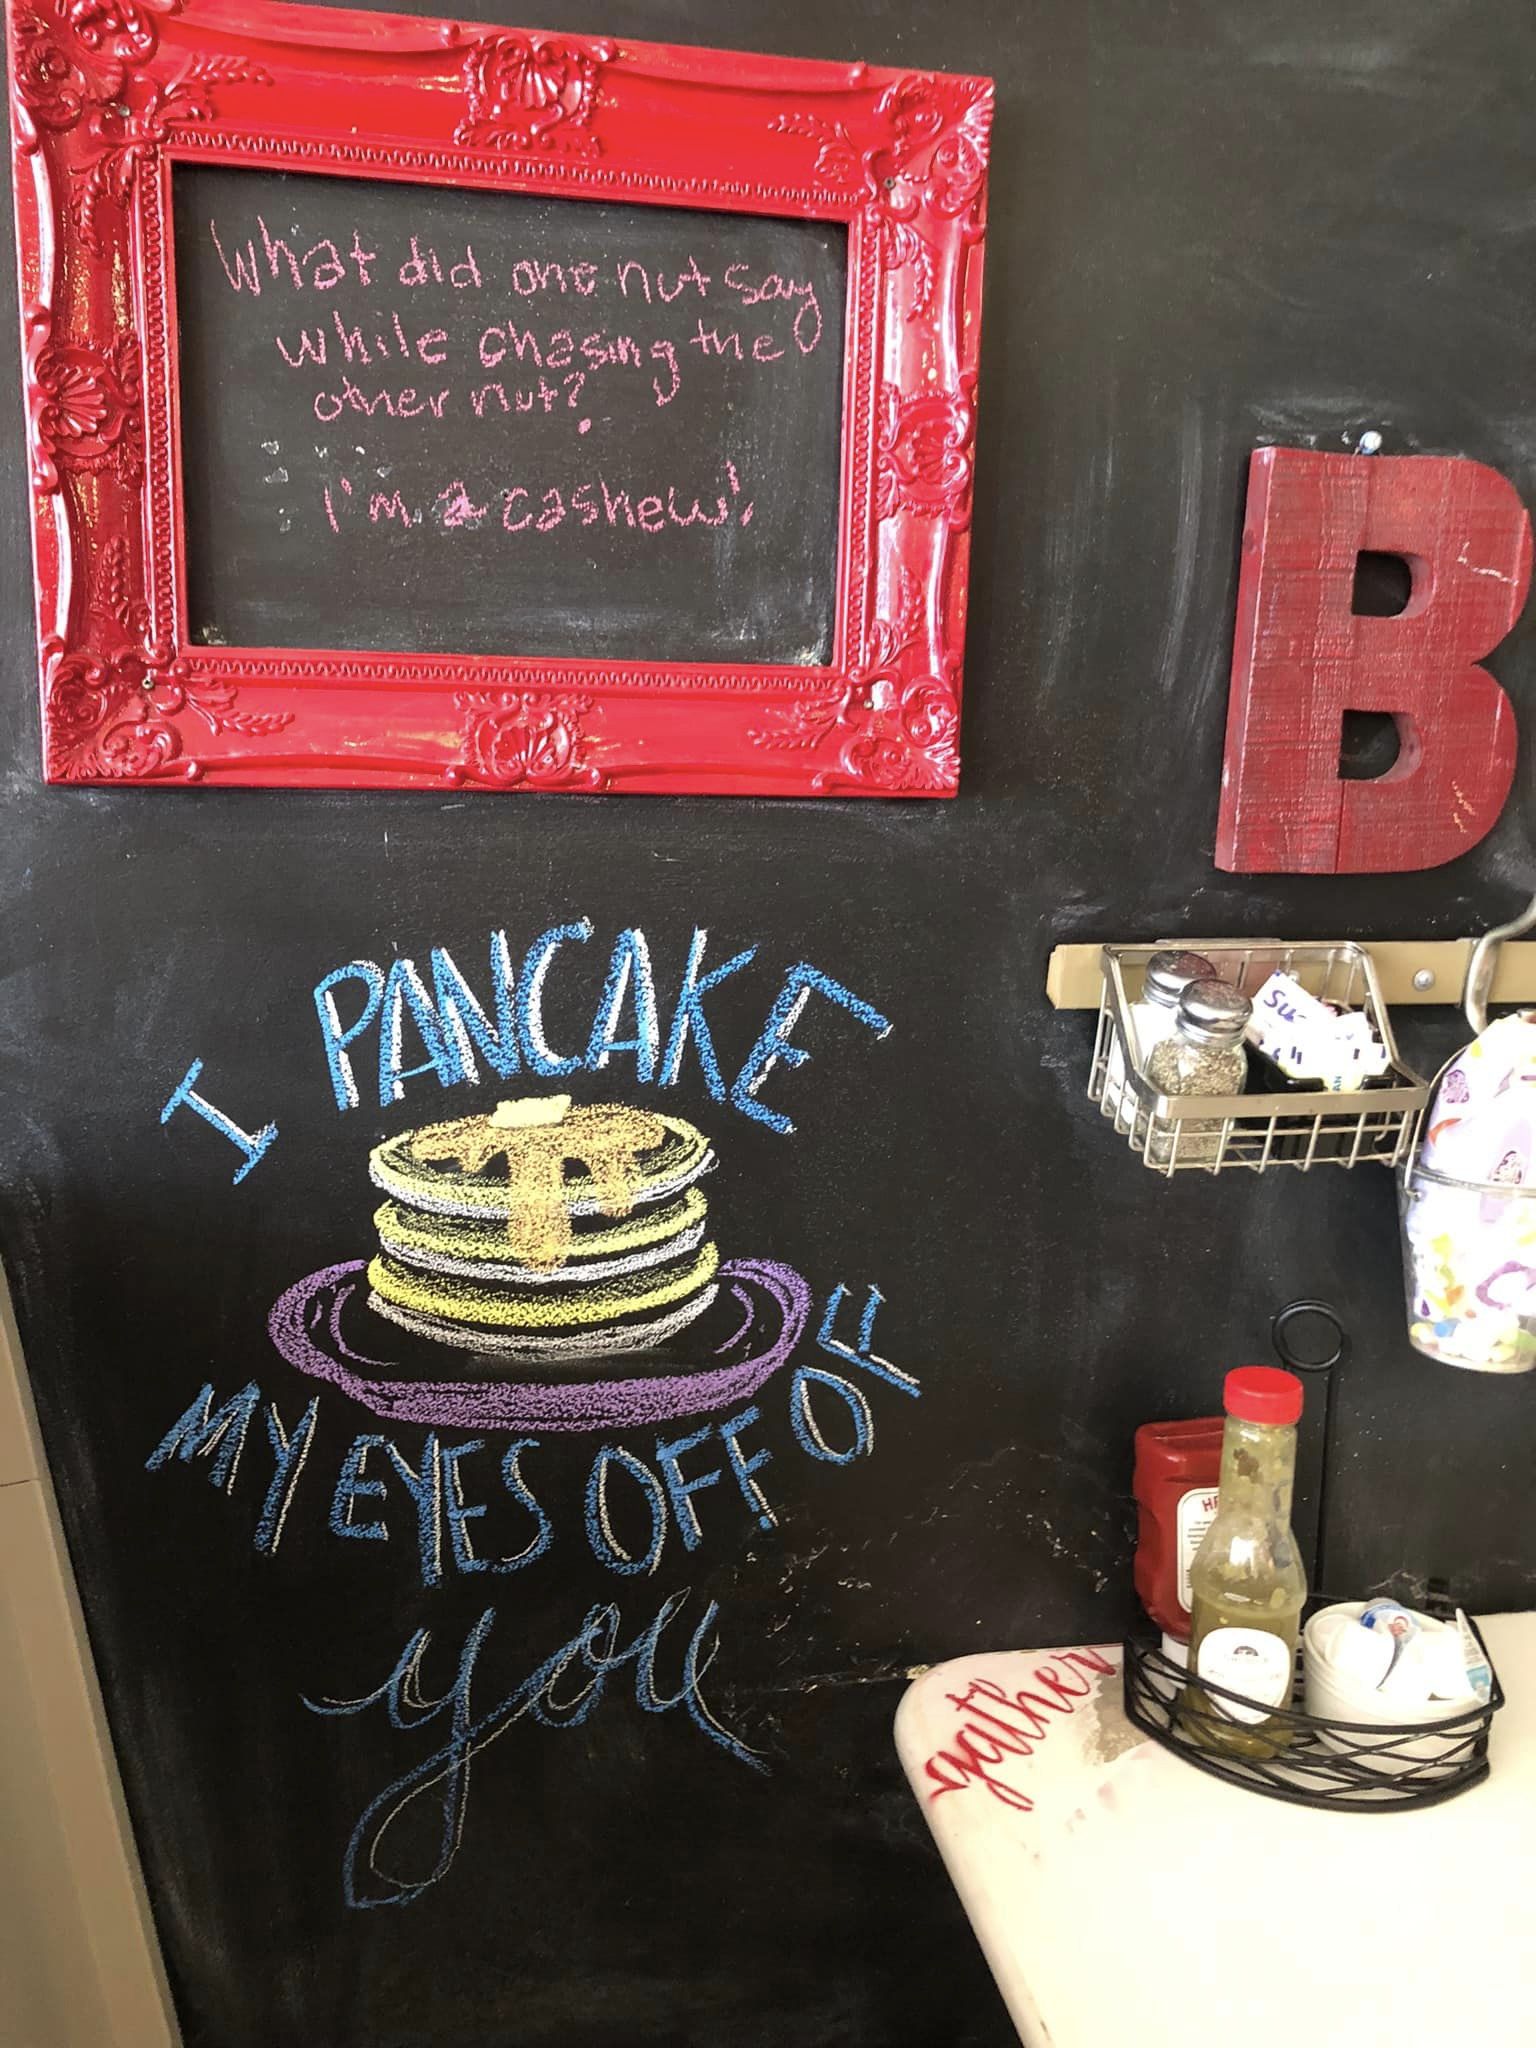 What did one nut say
while chasing the
other nut?
I'm a cashew!
B
I PANCAKE
MY EYES OFF OF
you
gather